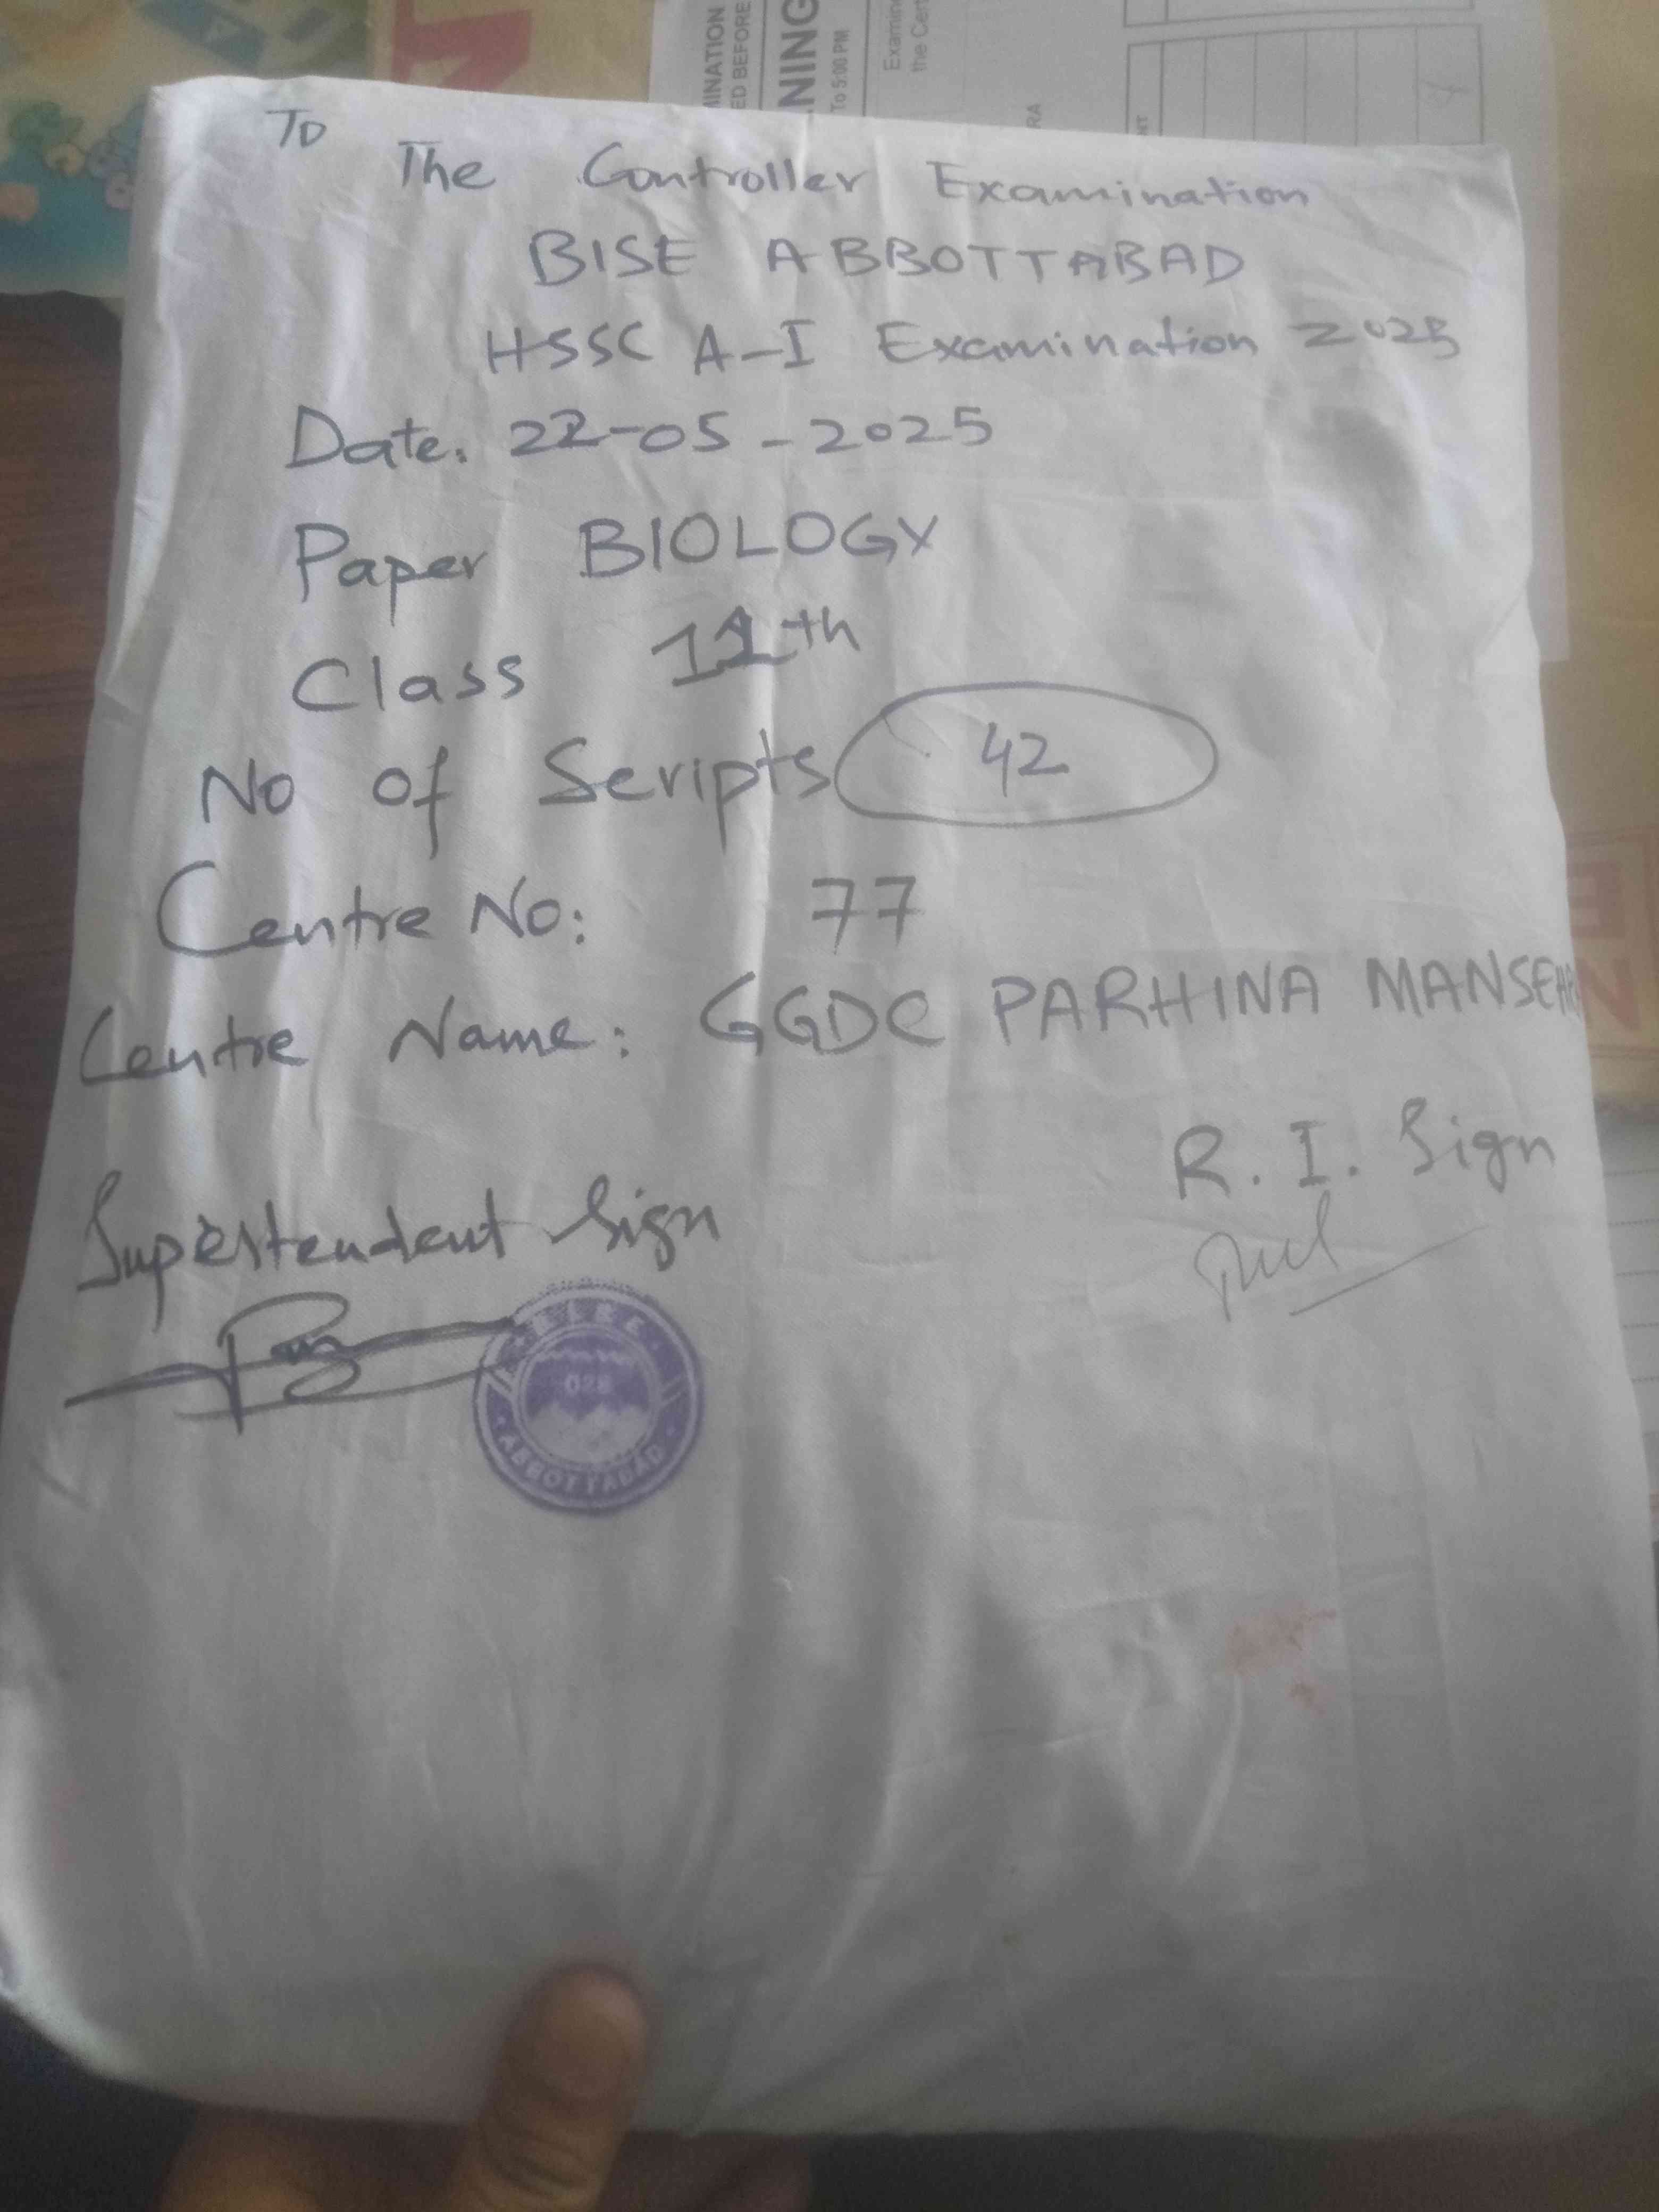 To
The Controller Examination
BISE ABBOTTABAD
HSSC A-I Examination 2025
Date: 22-05-2025
Paper BIOLOGY
Class 11th
No of Scripts 42
Centre No: 77
Centre Name: GGDC PARHINA MANSEH
R. I. Sign
Superstendent Sign
028
ABBOTTABAD
MINATION
ED BEFORE
NING
To 5:00 PM
Examin
the Cer
RA
NT